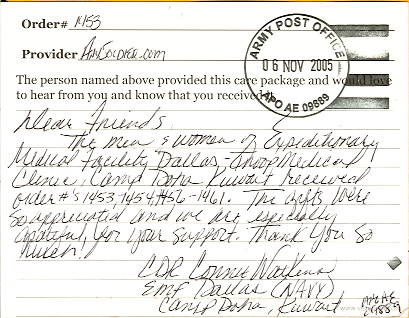 Order# 1453
Provider AnySoldier.com
ARMY POST OFFICE
06 NOV 2005
APO AE 09889
The person named above provided this care package and would love
to hear from you and know that you received it.
Dear Friends,
The men & women of Expeditionary
Medical Facility Dallas - Troop Medical
Clinic, Camp Doha Kuwait received
order #'s 1453, 1454, 1456-1461. The gifts were
so appreciated and we are especially
grateful for your support. Thank you so
much!
CDR Connie Watkins
EMF Dallas (NAVY)
Camp Doha, Kuwait
APO AE
09889